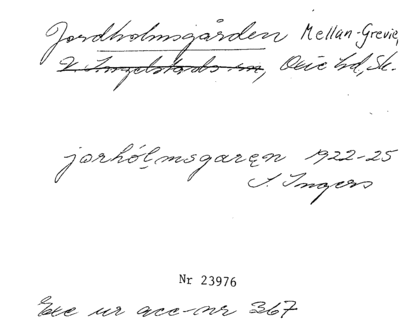 Jordholmsgården Mellan-Grevie,
V. Ingelstads sn, Oxie hd, Sk.
jorhól̥msgaręn 1922-25
S. Ingers
Nr 23976
Exc ur acc-nr 367